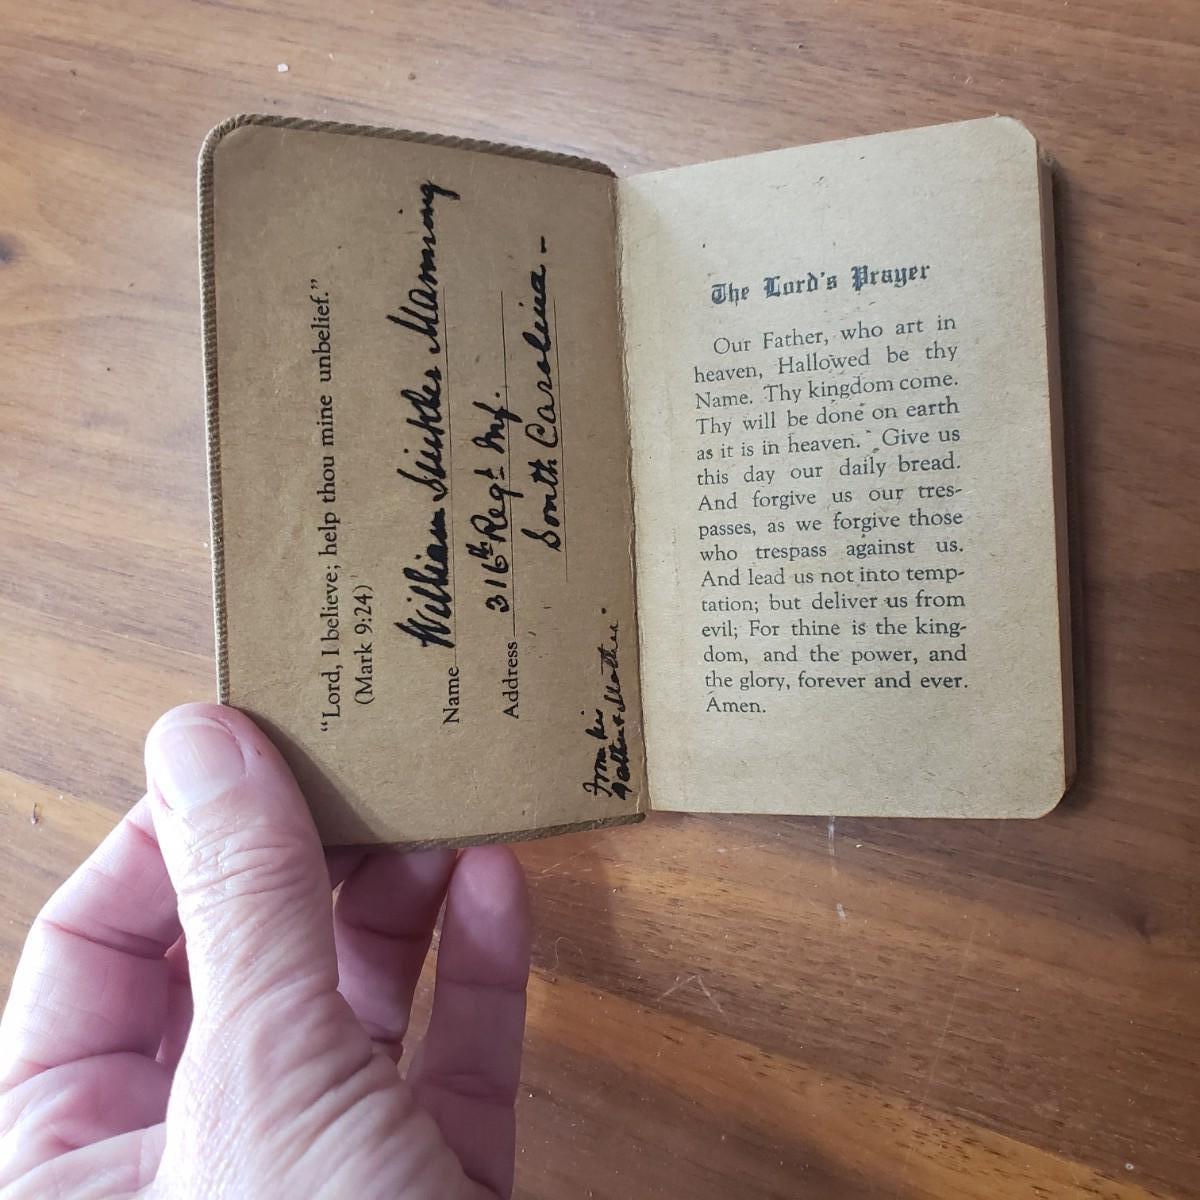 "Lord, I believe; help thou mine unbelief."
(Mark 9:24)
Name William Sinkler Manning
Address 316th Regt Inf.
South Carolina -
From his
Father & Mother.
The Lord's Prayer
Our Father, who art in
heaven, Hallowed be thy
Name. Thy kingdom come.
Thy will be done on earth
as it is in heaven. Give us
this day our daily bread.
And forgive us our tres-
passes, as we forgive those
who trespass against us.
And lead us not into temp-
tation; but deliver us from
evil; For thine is the king-
dom, and the power, and
the glory, forever and ever.
Amen.